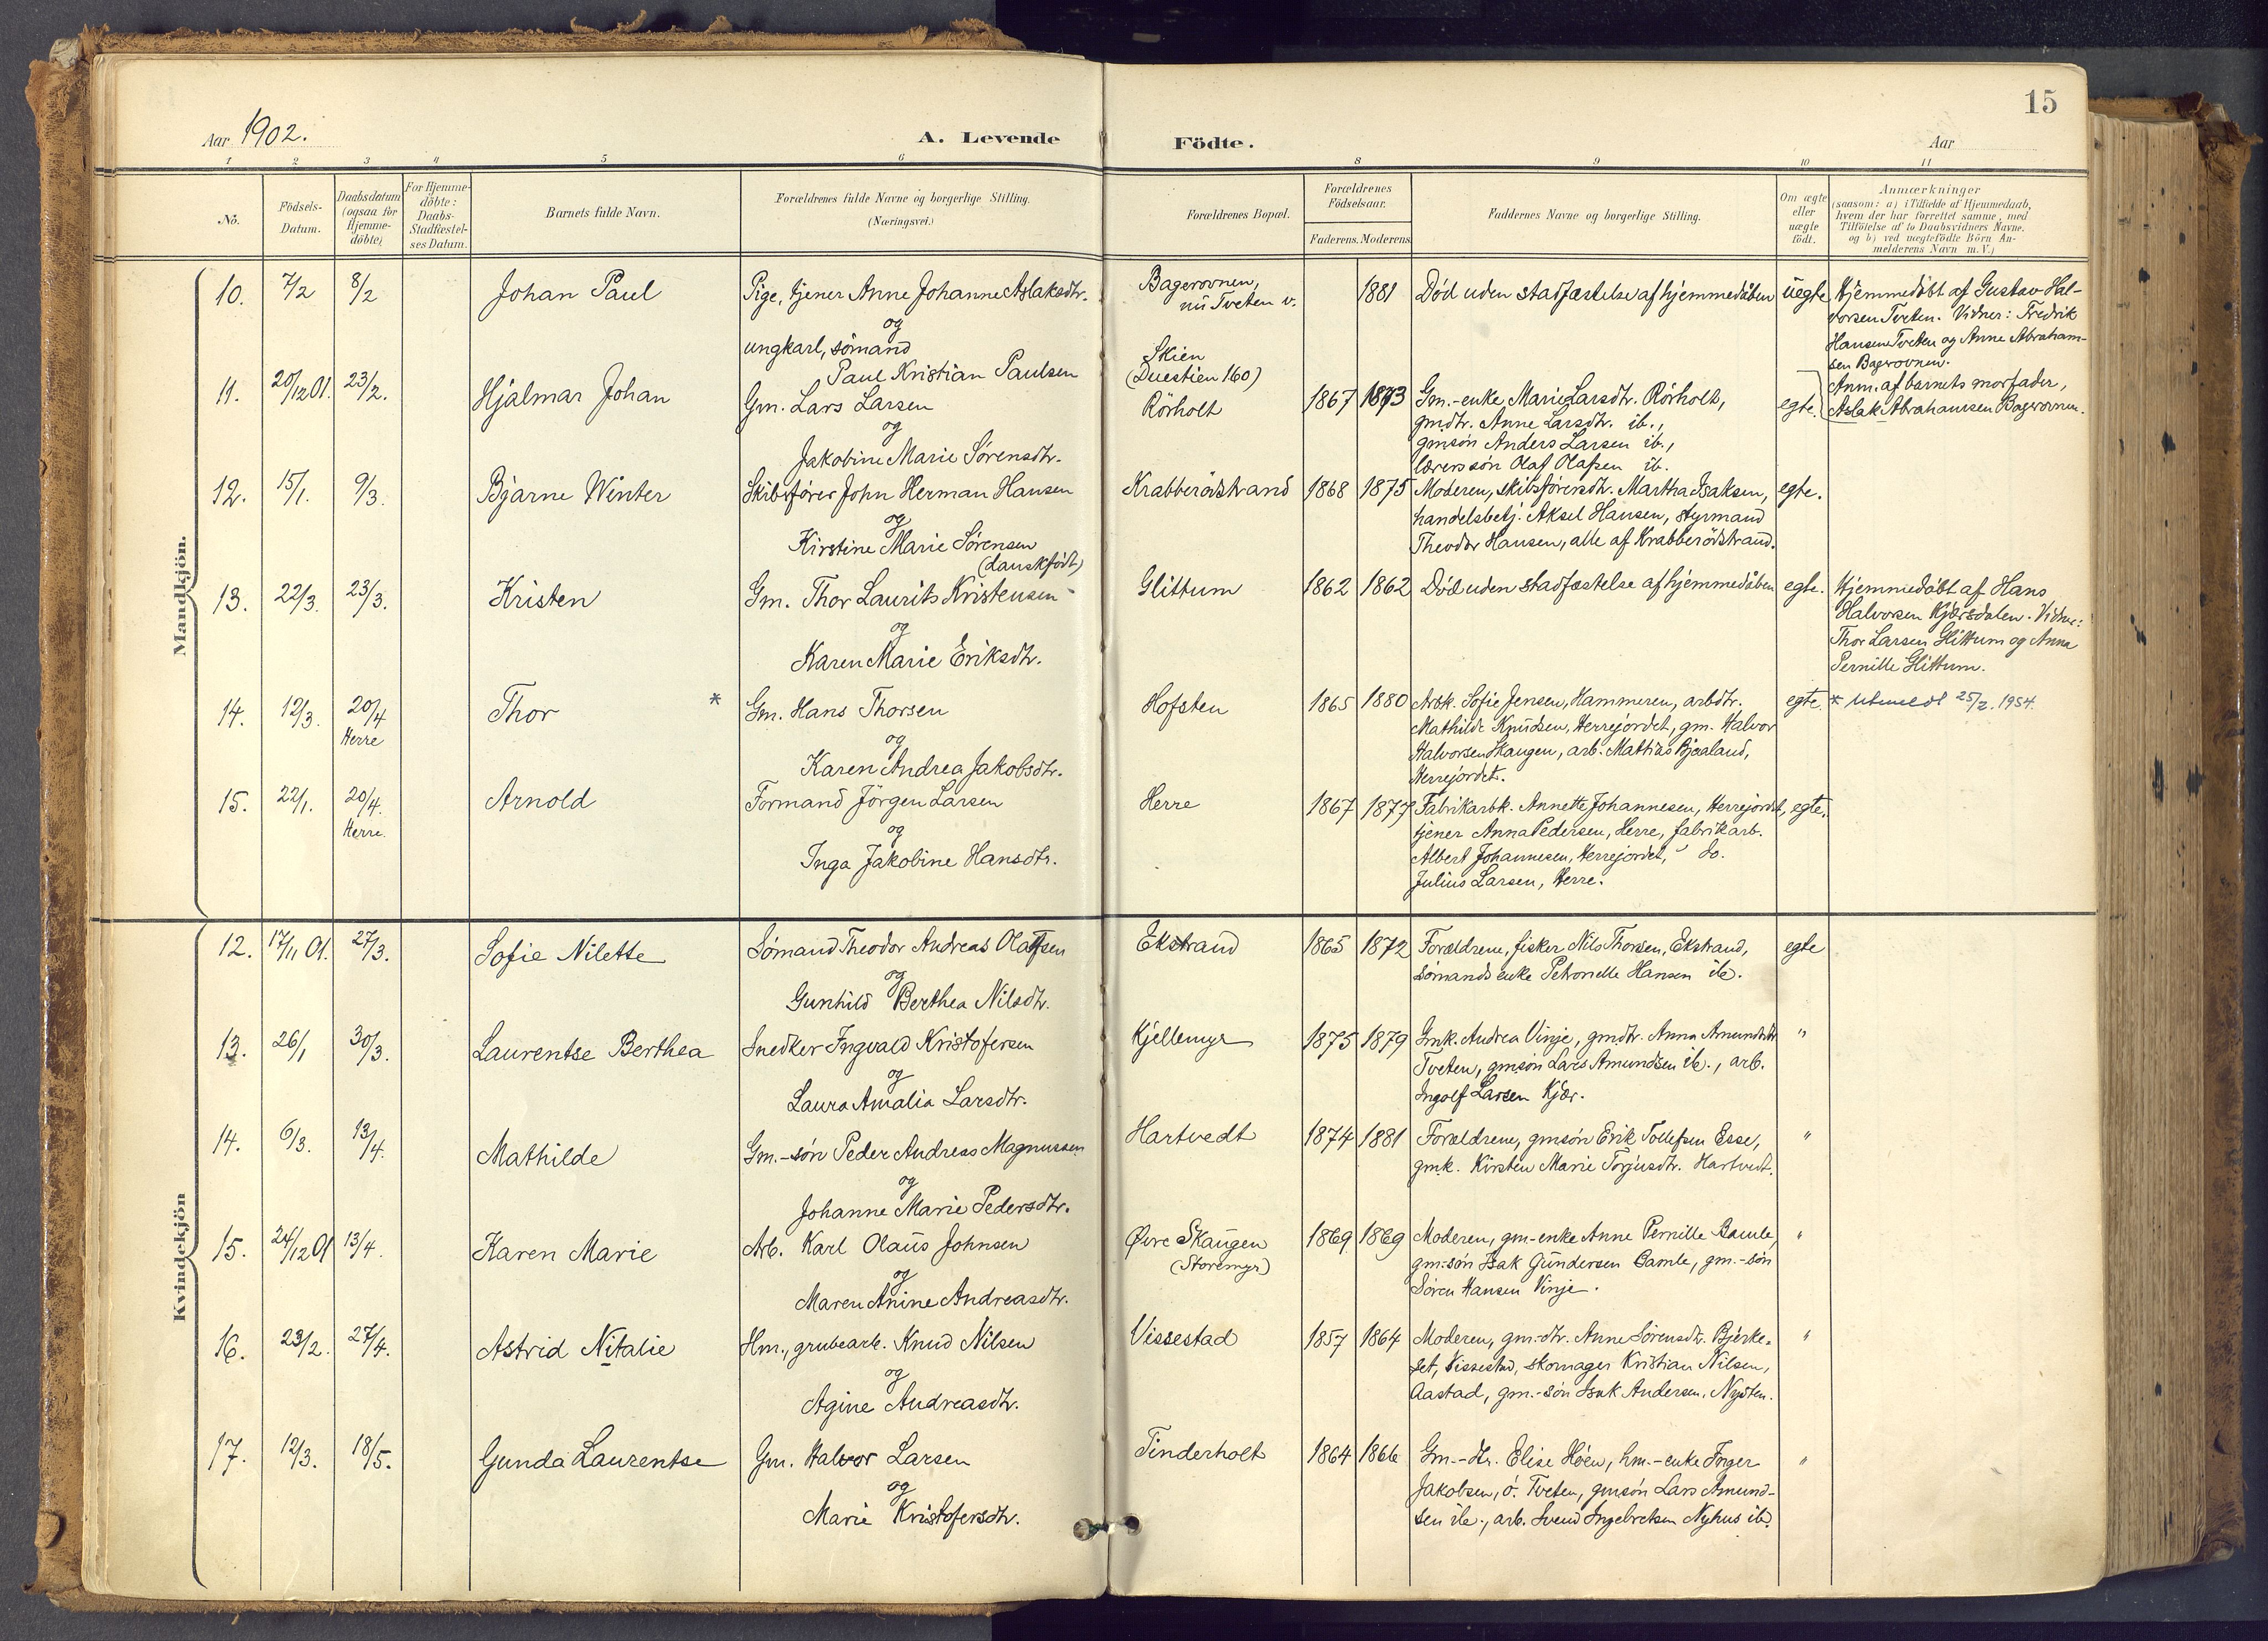 15
Aar 1902.
A. Levende Födte.
Aar
1 2 3 4 5 6 8 9 10 11
No.
Födsels-Datum.
Daabsdatum (ogsaa for Hjemme-döbte)
For Hjemme-döbte: Daabs-Stadfæstel-ses Datum.
Barnets fulde Navn.
Forældrenes fulde Navne og borgerlige Stilling. (Næringsvei.)
Forældrenes Bopæl.
Forældrenes Födselsaar.
Faderens. Moderens.
Faddernes Navne og borgerlige Stilling.
Om ægte eller uægte födt.
Anmærkninger
(saasom: a) i Tilfælde af Hjemmedaab,
hvem der har forrettet samme, med
Tilföielse af to Daabsvidners Navne.
og b) ved uægtefödte Börn An-
melderens Navn m.V.)
Mandkjön.
10. 7/2 8/2 Johan Paul
Pige, tjener Anne Johanne Aslaksdtr.
og
ungkarl, sömand
Paul Kristian Paulsen
Bagerovnen,
nu Tveten v.
Skien
(Duestien 160)
1881
Död uden stadfæstelse af hjemmedåben
uegte
Hjemmedöbt af Gustav Hal-
vorsen Tveten. Vidner: Fredrik
Hansen Tveten og Anne Abraham-
sen Bagerovnen.
Anm. af barnets morfader,
Aslak Abrahamsen Bagerovnen.
11. 20/12 01. 23/2. Hjalmar Johan
Gm. Lars Larsen
og
Jakobine Marie Sørensdtr.
Rörholt
1867 1873
Gm.-enke Marie Larsdtr. Rörholt,
gmdtr. Anne Larsdtr. ib.,
gmsön Anders Larsen ib.,
lærerssön Olaf Olafsen ib.
egte.
12. 15/1. 9/3. Bjarne Winter
Skibsfører John Herman Hansen
og
Kirstine Marie Sørensen
(danskfödt)
Krabberödstrand
1868 1875
Moderen, skibsførersdtr. Martha Isaksen,
handelsbetj. Aksel Hansen, styrmand
Theodor Hansen, alle af Krabberödstrand.
egte.
13. 22/3. 23/3. Kristen
Gm. Thor Laurits Kristensen
og
Karen Marie Eriksdtr.
Glittum
1862 1862
Död uden stadfæstelse af hjemmedåben
egte.
Hjemmedöbt af Hans
Halvorsen Kjærsdalen. Vidner:
Thor Larsen Glittum og Anna
Pernille Glittum.
14. 12/3. 20/4 Herre Thor *
Gm. Hans Thorsen
og
Karen Andrea Jakobsdtr.
Hofsten
1865 1880
Arbk. Sofie Jensen, Hammeren, arbdtr.
Mathilde Knudsen, Herrejordet, gm. Halvor
Halvorsen Skaugen, arb. Mathias Bjaaland,
Herrejordet.
egte.
* Utmeldt 25/2. 1954.
15. 22/1. 20/4. Herre. Arnold
Formand Jörgen Larsen
og
Inga Jakobine Hansdtr.
Herre
1867 1877
Fabrikarbk. Annette Johannesen, Herrejordet,
tjener Anna Pedersen, Herre, fabrikarb.
Albert Johannesen, Herrejordet, do.
Julius Larsen, Herre.
egte.
Kvindekjön
12. 17/11 01. 27/3. Sofie Nilette
Sömand Theodor Andreas Olafsen
og
Gunhild Berthea Nilsdtr.
Ekstrand
1865 1872
Forældrene, fisker Nils Thorsen, Ekstrand,
sömandsenke Petronelle Hansen ib.
egte
13. 26/1 30/3. Laurentse Berthea
Snedker Ingvald Kristofersen
og
Laura Amalia Larsdtr.
Kjellemyr
1875 1879
Gmk. Andrea Vinje, gmdtr. Anna Amundsdtr
Tveten, gmsön Lars Amundsen ib., arb.
Ingolf Larsen Kjær.
"
14. 6/3. 13/4. Mathilde
Gm.-sön Peder Andreas Magnussen
og
Johanne Marie Pedersdtr.
Hartvedt
1874 1881
Forældrene, gmsön Erik Tollefsen Esse,
gmk. Kirsten Marie Torjusdtr. Hartvedt.
"
15. 24/12 01 13/4. Karen Marie
Arb. Karl Olaus Johnsen
og
Maren Anine Andreasdtr.
Øvre Skaugen
(Storemyr)
1869 1869
Moderen, gm-enke Anne Pernille Bamle,
gm-sön Isak Gundersen Bamle, gm.-sön
Sören Hansen Vinje.
"
16. 23/2. 27/4. Astrid Nitalie
Hm., grubearb. Knud Nilsen
og
Agine Andreasdtr.
Vissestad
1857 1864
Moderen, gm.-dtr. Anne Sørensdtr. Bjerke-
set, Vissestad, skomager Kristian Nilsen,
Aastad, gm.-sön Isak Andersen, Nysten.
"
17. 12/3. 18/5. Gunda Laurentse
Gm. Halvor Larsen
og
Marie Kristofersdtr.
Tinderholt
1864 1866
Gm.-dtr. Elise Höen, hm.-enke Inger
Jakobsen, ö. Tveten, gmsön Lars Amund-
sen ib., arb. Svend Ingebretsen Nyhus ib.
"